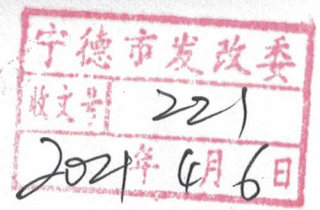 宁德市发改委
收文号 221
2021年4月6日